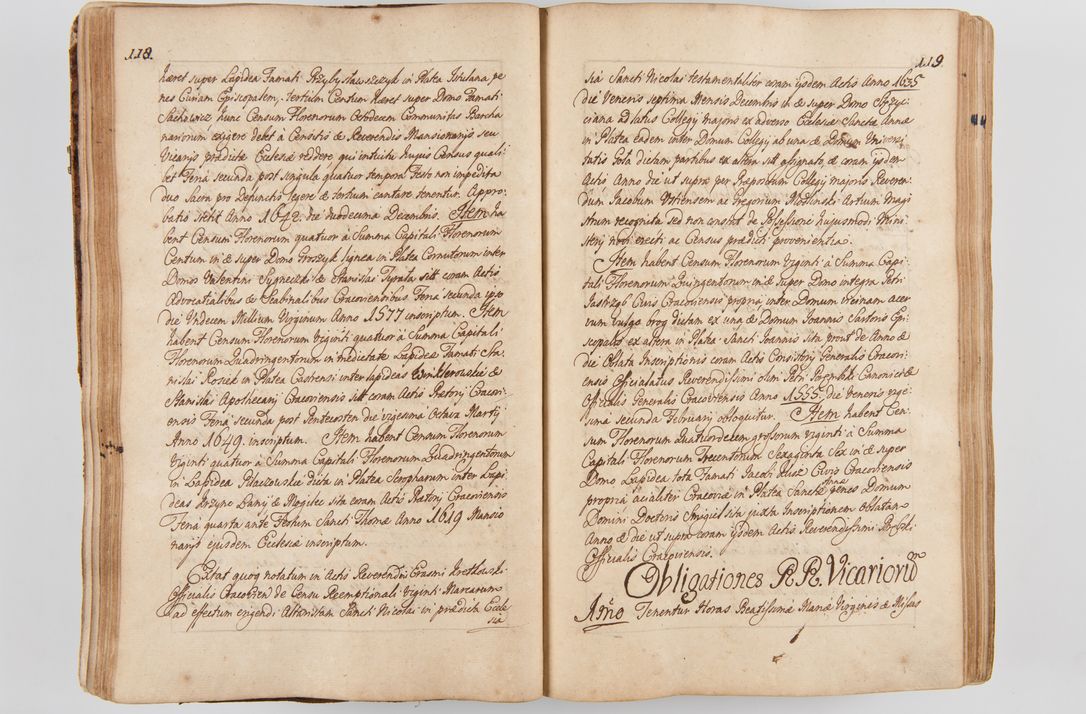 118.
hæret super Lapidea Famati Przybysławszczyk in Platea Vislana, pe
nes Curiam Episcopalem, tertium Censum hæret super Domo Famati
Sachowicz hunc Censum Florenorum Octodecem Communitas Barcha
naniorum exigere debet à Censitis & Reverendis Mansionarijs seu
Vicarijs prædictæ Ecclesiæ reddere, qui intuitu hujus Census quali
bet Feria secunda post singula quatuor tempora Festo non impedita
duo Sacra pro Defunctis legere & tertium cantare tenentur. Appro:
batio stetit Anno 1642. die duodecima Decembris. Item ha
bent Censum Florenorum quatuor à Summa Capitali Florenorum
Centum in & super Domo Groszyk lignea in Platea Cornutorum inter
Domos Valentini Sygnecki & Stanislai Tyrata sitt coram Actis
Advocatialibus & Scabinalibus Cracoviensibus Feria secunda ipso
die Undecem Millium Virginum Anno 1577 inscriptum. Item
habent Censum Florenorum Viginti quatuor à Summa Capitali
Florenorum Quadringentorum in medietate Lapideæ Famati Sta
nislai Rosick in Platea Castrensi inter lapideas Winklerowskie &
Stanislai Apothecarij Cracoviensis sitt coram Actis Prætorij Cracovi:
ensis Feria secunda post Pentecosten die vigesima Octava Martij
Anno 1649. inscriptum. Item habent Censum Florenorum
Viginti quatuor à Summa Capitali Florenorum Quadringentorum
in Lapidea Pelaczowska dicta in Platea Scropharum inter Lapi
deas Krzyne Lanij & Rogilec sita coram Actis Prætorij Cracoviensis
Feria quarta ante Festum Sancti Thomæ Anno 1619 Mansio
narijs ejusdem Ecclesiæ inscriptum.
Extat quoq notatum in Actis Reverendissi Erasmi Kretkowski
Officialis Cracovien de Censu Reemptionali Viginti Marcarum
ad effectum erigendi Altaristam Sancti Nicolai in prædicta Eccle
sia
119.
sia Sancti Nicolai testamentaliter coram ijsdem Actis Anno 1635
die Veneris septima Mensis Decembris in & super Domo Strzyci
ciana ad latus Collegij majoris ex adverso Ecclesiæ Sanctæ Annæ
in Platea eadem inter Domum Collegij ab una & Domum Universi
tatis Gola dictam partibus ex altera sitt assignato, & coram ijsdem
Actis Anno die ut supra per Præpositum Collegij majoris Reveren:
dum Jacobum Ustiensem ac Gregorium Modlinski Artium Magi
strum recognita sed non constat de Possessione hujusmodi Mini
sterij novi erecti ac Census prædicti provenientia.
Item habent Censum Florenorum Viginti à Summa Capi:
tali Florenorum Quingentorum in & super Domo integra Petri
Jastrząb Civis Cracoviensis propria inter Domum vicinam acer
vum vulgo brog dictam ex una & Domum Joannis Sartoris Epi
scopalis ex altera in Platea Sancti Joannis sita prout de Anno &
die Oblata Inscriptionis coram Actis Consistorij Generalis Cracovi:
ensis Officialatus Reverendissimi olim Petri Porembski Canonici &
Officialis Generalis Cracoviensis Anno 1555. die Veneris vige:
sima secunda Februarij obloquitur. Item habent Cen:
sum Florenorum Quatuordecem grossorum viginti à Summa
Capitali Florenorum Trecentorum Sexaginta Sex in & super
Domo Lapidea tota Famati Jacobi Civis Cracoviensis
propria acialiter Cracoviæ in Platea Sanctæ Annæ penes Domum
Domini Doctoris Smigiel sita juxta Inscriptionem oblatam
Anno & die ut supra coram ijsdem Actis Reverendissimi
Officialis Cracoviensis.
Obligationes R. R. Vicarioru
Primo Tenentur Horas Beatissimæ Mariæ Virginis & Missas